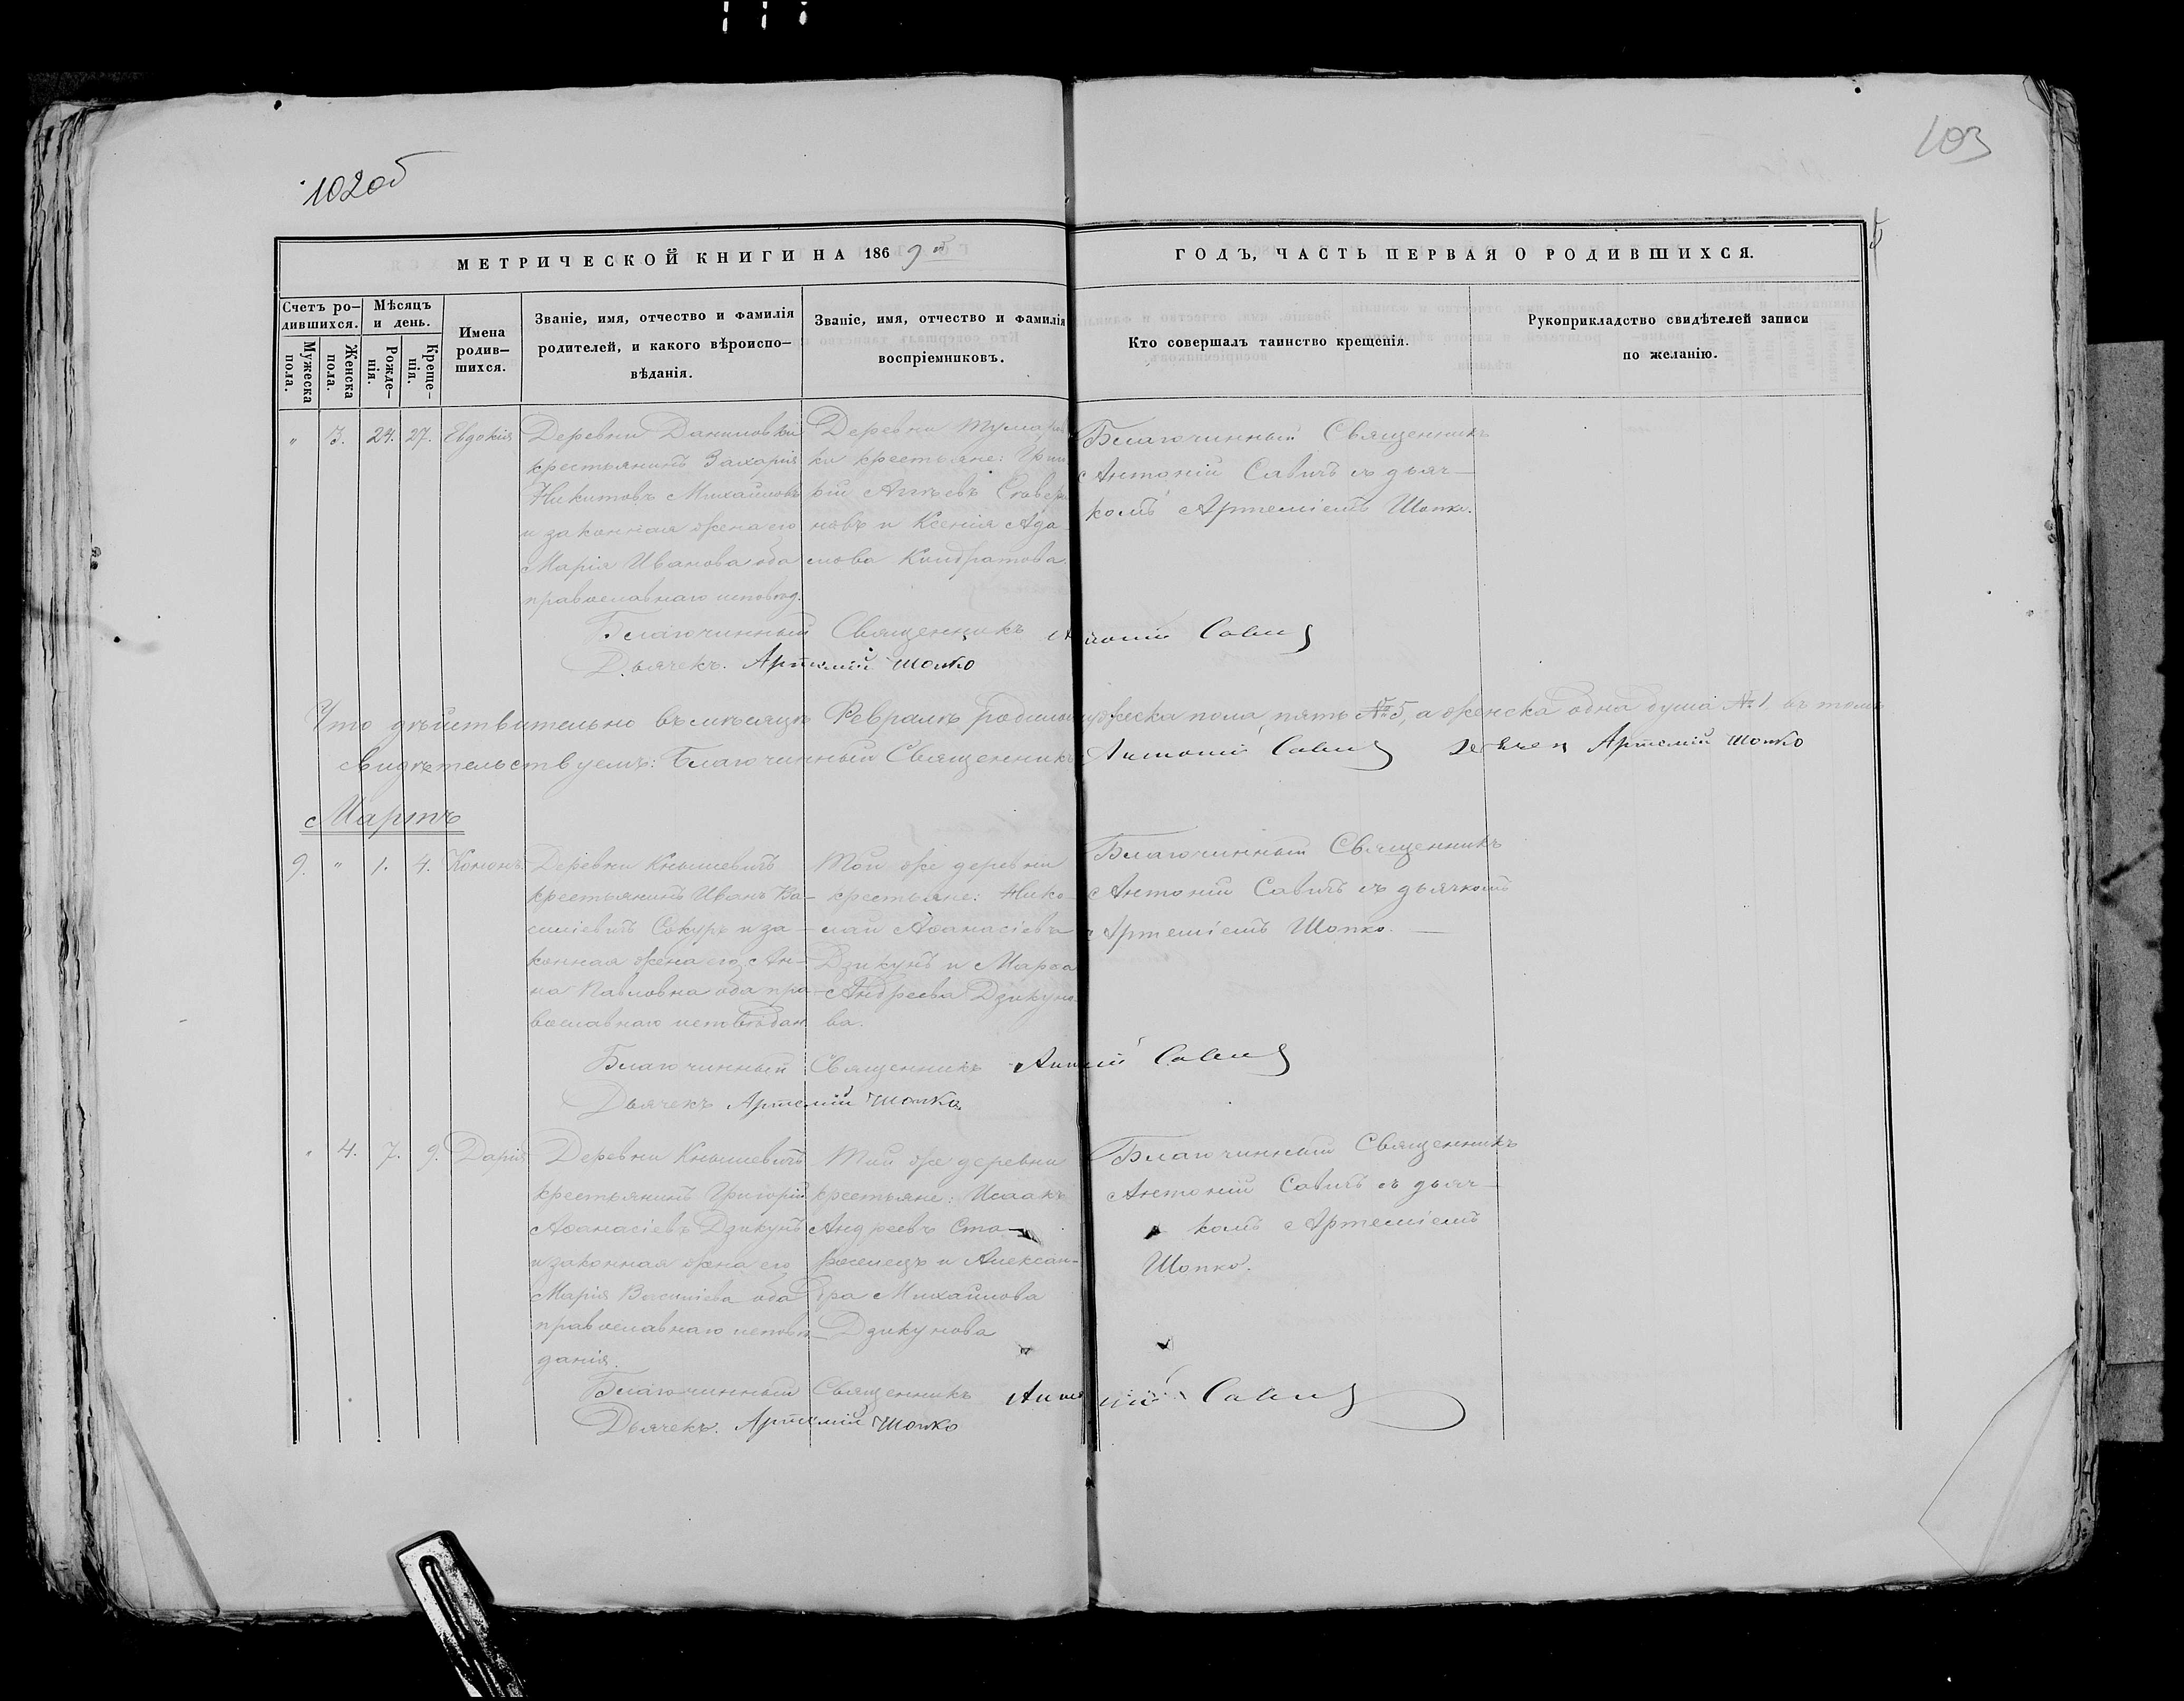 102об
103
5
МЕТРИЧЕСКОЙ КНИГИ НА 1869й ГОДЪ, ЧАСТЬ ПЕРВАЯ О РОДИВШИХСЯ.
Счетъ ро-
дившихся.
Мужеска
пола.
Женска
пола.
Мѣсяцъ
и день.
Рожде-
нія.
Креще-
нія.
Имена
родив-
шихся.
Званіе, имя, отчество и фамилія
родителей, и какого вѣроиспо-
вѣданія.
Званіе, имя, отчество и фамилія
воспріемниковъ.
Кто совершалъ таинство крещенія.
Рукоприкладство свидѣтелей записи
по желанію.
" 3. 24. 27. Евдокія
Деревни
крестьянинъ Захарія
Никитовъ Михайловъ
и законная жена его
Марія Иванова оба
православнаго исповѣд.
Деревни
ки крестьяне:
рій
новъ и Ксенія Ада-
мова Кондратова.
Благочинный Священникъ
Антоній Савичъ съ дьяч-
комъ Артеміемъ Шопко.
Благочинный Священникъ Антоній Савичъ
Дьячекъ. Артемій Шопко
Что дѣйствительно въ мѣсяцѣ Февралѣ родилось мужеска пола пять № 5, а женска одна душа № 1 въ томъ
свидѣтельствуемъ: Благочинный Священникъ Антоній Савичъ Дьячекъ Артемій Шопко
Мартъ
9. " 1. 4. Кононъ.
Деревни Кнышевичъ
крестьянинъ Иванъ Ва-
силіевичъ Сокуръ и за-
конная жена его Ан-
на Павловна оба пра-
вославнаго исповѣдан.
Той же деревни
крестьяне: Нико-
лай Аѳанасіевъ
Дзикунъ и Марѳа
Андреева Дзикуно-
ва.
Благочинный Священникъ
Антоній Савичъ съ дьячкомъ
Артеміемъ Шопко.
Благочинный Священникъ Антоній Савичъ
Дьячекъ Артемій Шопко
" 4. 7. 9. Дарія
Деревни Кнышевичъ
крестьянинъ Григорій
Аѳанасіевъ Дзикунъ
и законная жена его
Марія Василіева оба
православнаго исповѣ-
данія.
Той же деревни
крестьяне: Исаакъ
Андреевъ Сто-
и Алексан-
дра Михайлова
Дзикунова
Благочинный Священникъ
Антоній Савичъ съ дьяч-
комъ Артеміемъ
Шопко.
Благочинный Священникъ Антоній Савичъ
Дьячекъ. Артемій Шопко